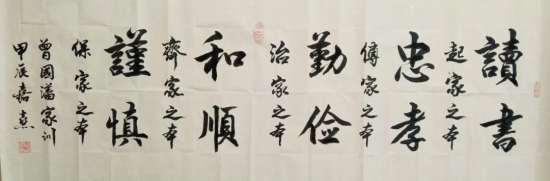 讀書
起家之本
忠孝
傳家之本
勤儉
治家之本
和順
齊家之本
謹慎
保家之本
曾國藩家訓
甲辰嘉熹